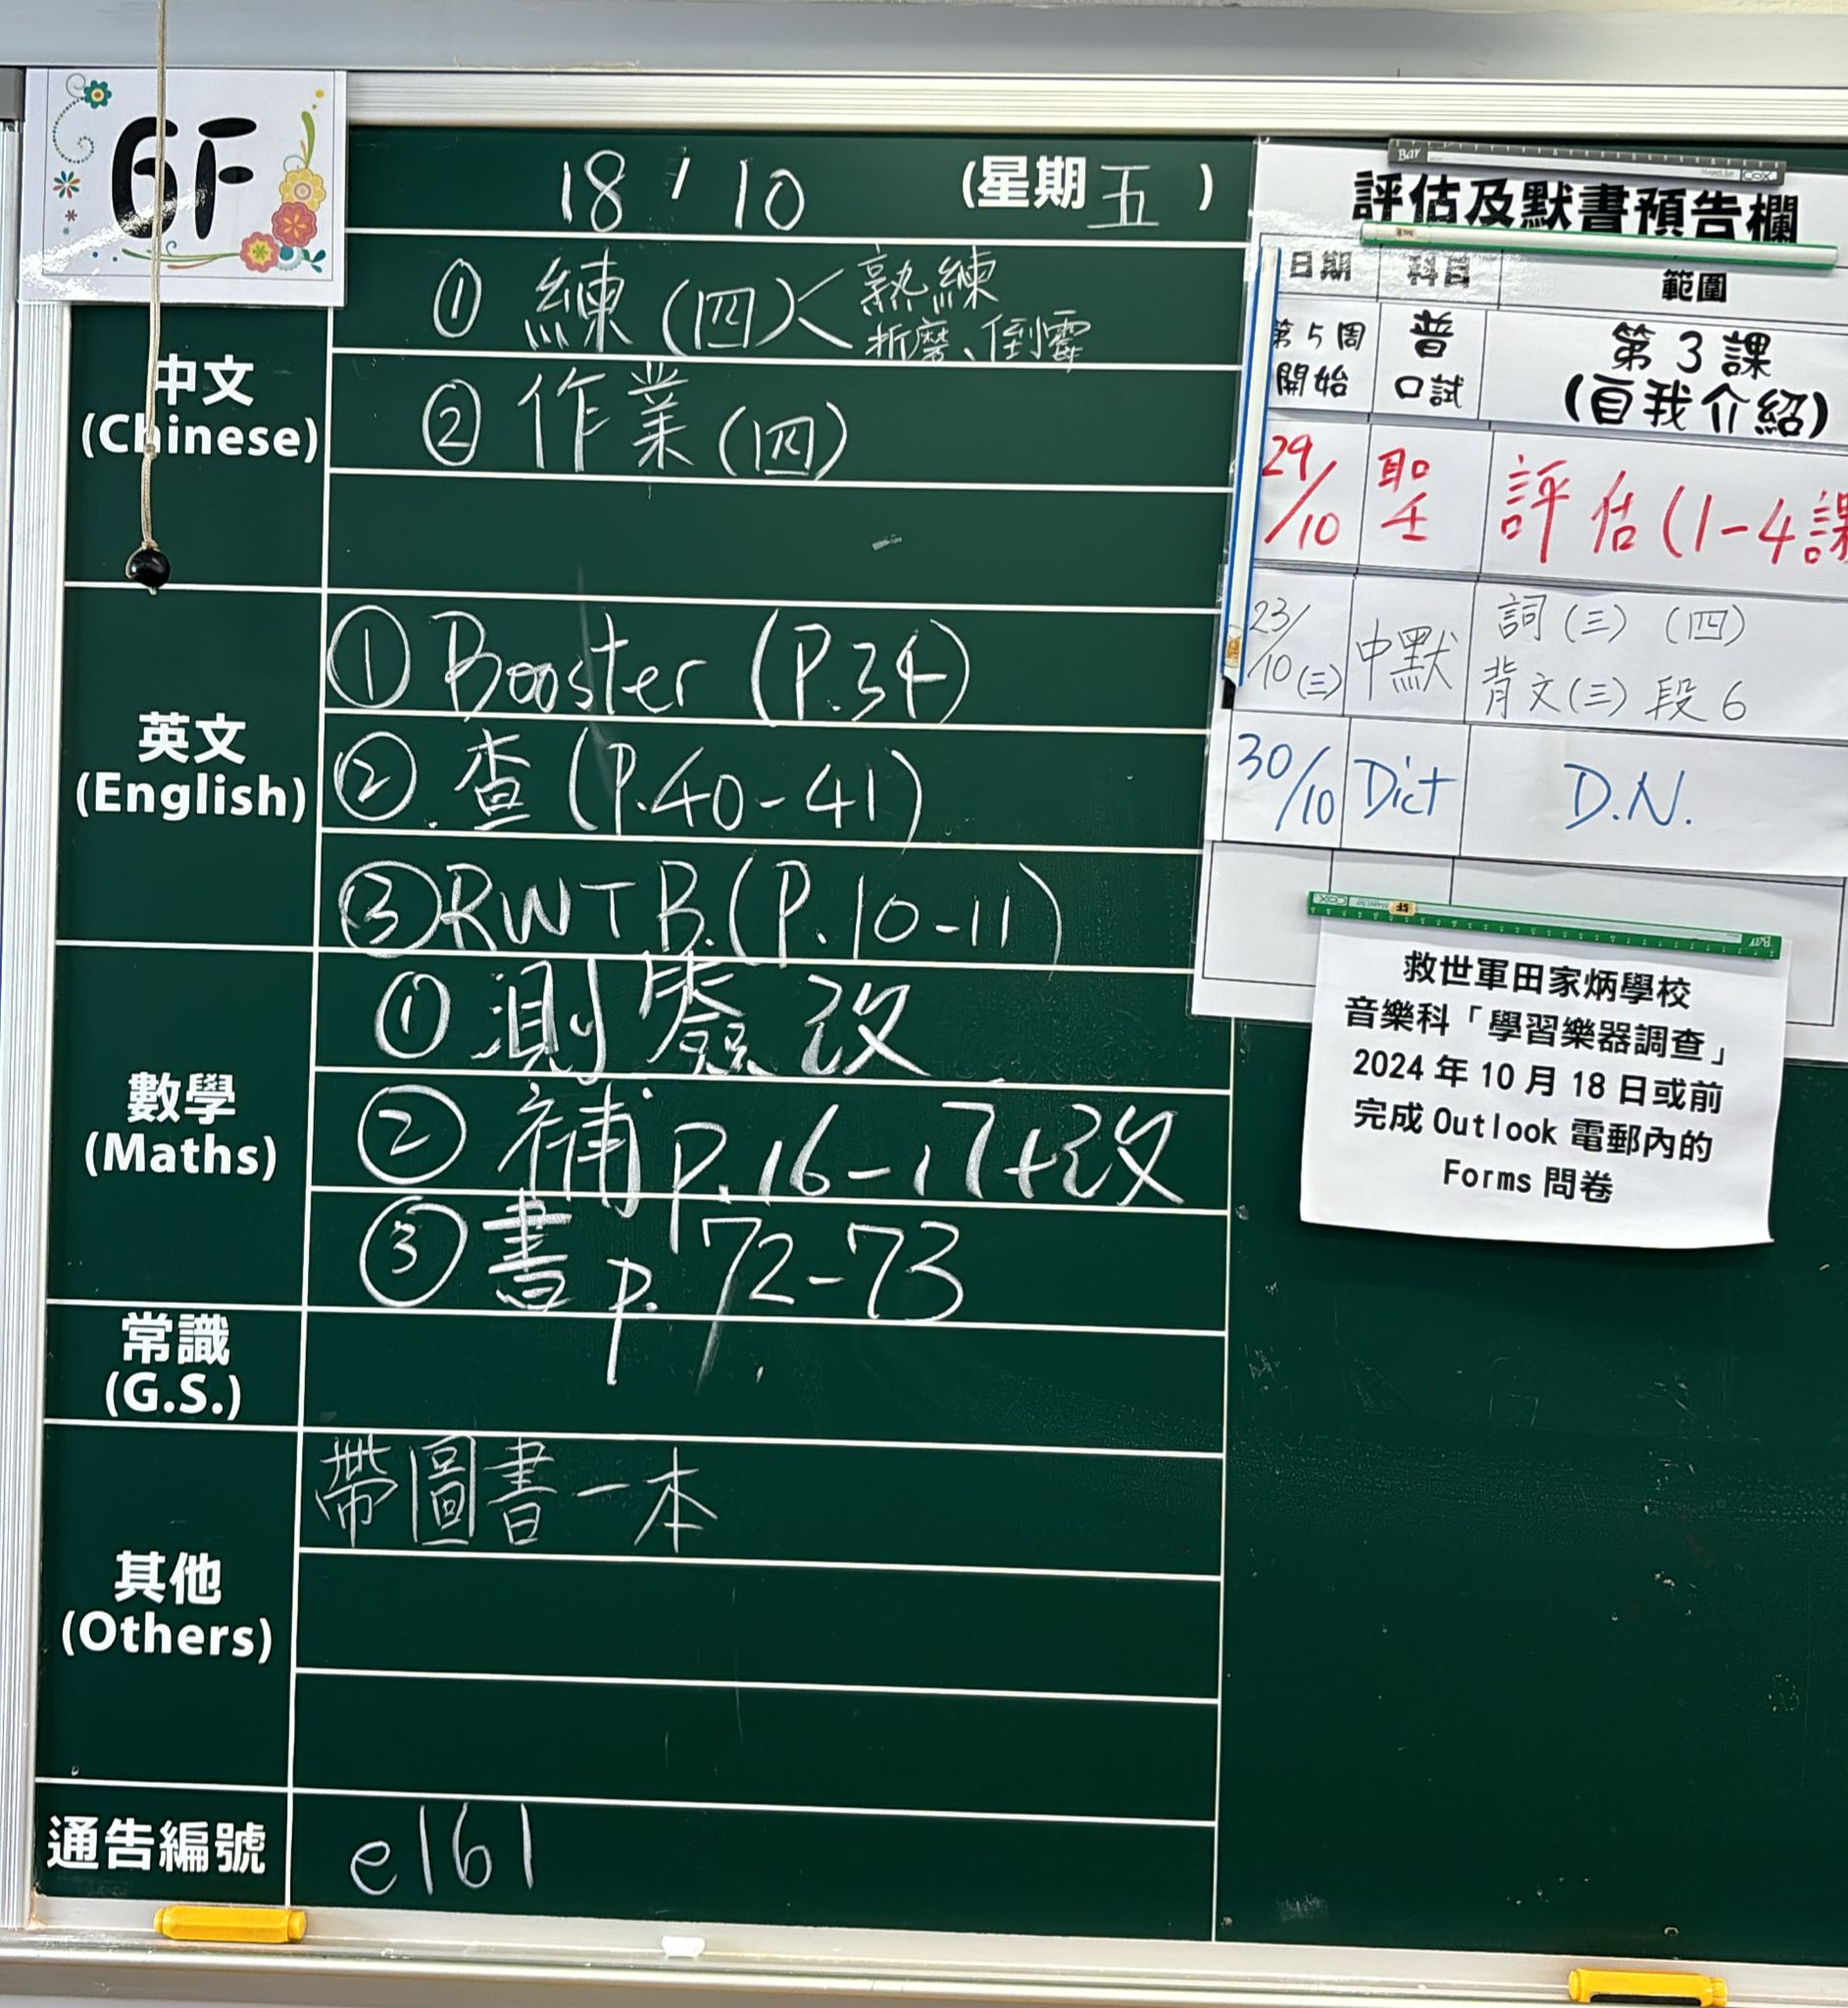 6F
18 / 10 (星期五)
中文
(Chinese)
① 練(四)< 熟練
折磨、倒霉
② 作業(四)
英文
(English)
① Booster (P.34)
② 查(P.40-41)
③ RWTB.(P.10-11)
數學
(Maths)
① 測 改
② 補 P.16-17+改
③ 書 P.72-73
常識
(G.S.)
其他
(Others)
帶圖書一本
通告編號
e161
評估及默書預告欄
日期 科目 範圍
第5周
開始
普
口試
第3課
(自我介紹)
29/10 聖 評估(1-4課
23/10(三) 中默 詞(三)(四)
背文(三)段6
30/10 Dict D.N.
救世軍田家炳學校
音樂科「學習樂器調查」
2024年10月18日或前
完成Outlook電郵內的
Forms問卷